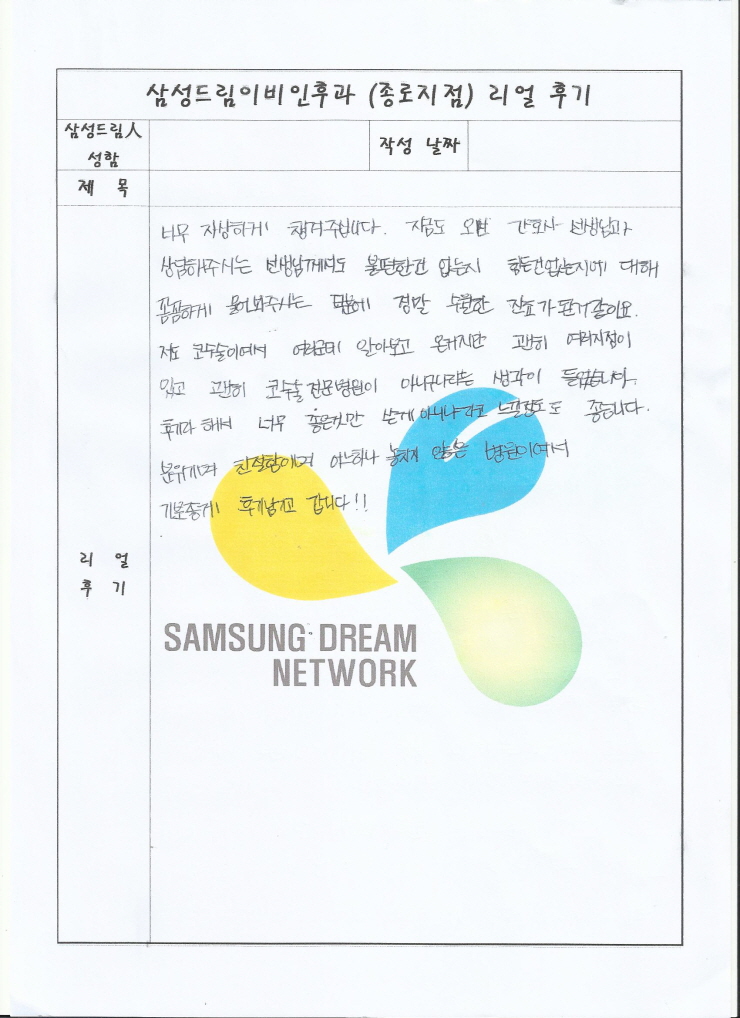 삼성드림이비인후과 (종로지점) 리얼 후기
삼성드림人
성함
작성 날짜
제 목
너무 자상하게 챙겨주십니다. 지금도 오번 간호사 선생님과
상담해주시는 선생님께서도 불편한건 없는지 힘든건없는지에 대해
꼼꼼하게 물어봐주시는 때문에 정말 수월한 진료가 된거같아요.
저도 코수술이여서 여러군데 알아보고 온거지만 괜히 여러지점이
있고 괜히 코수술 전문병원이 아니구나라는 생각이 들었습니다.
후기라 해서 너무 좋은것만 쓴게 아니냐라고 느낄정도로 좋습니다.
분위기며 친절함이며 어느하나 놓치지 않은 병원이여서
기분좋게 후기남기고 갑니다!!
리 얼
후 기
SAMSUNG DREAM
NETWORK